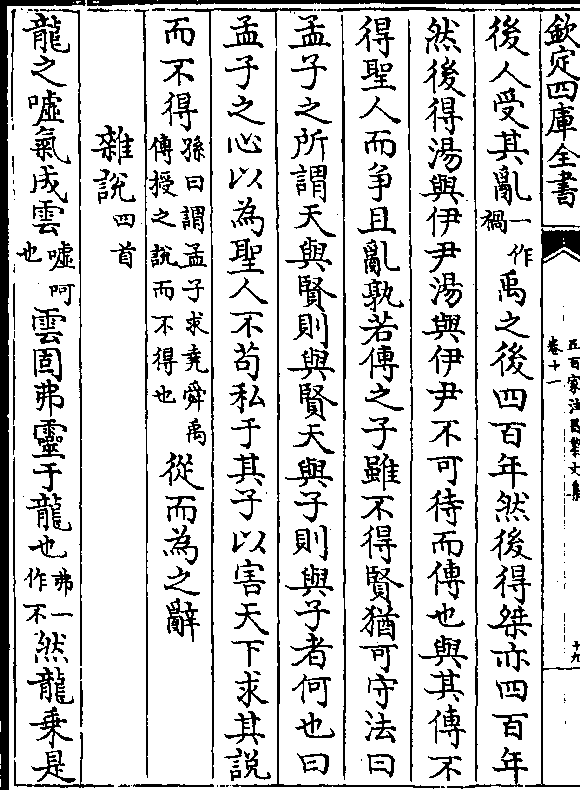 欽定四庫全書
五百家注昌黎文集
卷十一
十九
後人受其亂一作禍禹之後四百年然後得桀亦四百年
然後得湯與伊尹湯與伊尹不可待而傳也與其傳不
得聖人而争且亂孰若傳之子雖不得賢猶可守法曰
孟子之所謂天與賢則與賢天與子則與子者何也曰
孟子之心以為聖人不苟私于其子以害天下求其說
而不得孫曰謂孟子求堯舜禹傳授之說而不得也從而為之辭
雜說四首
龍之噓氣成雲噓呵也雲固弗靈于龍也弗一作不然龍乗是